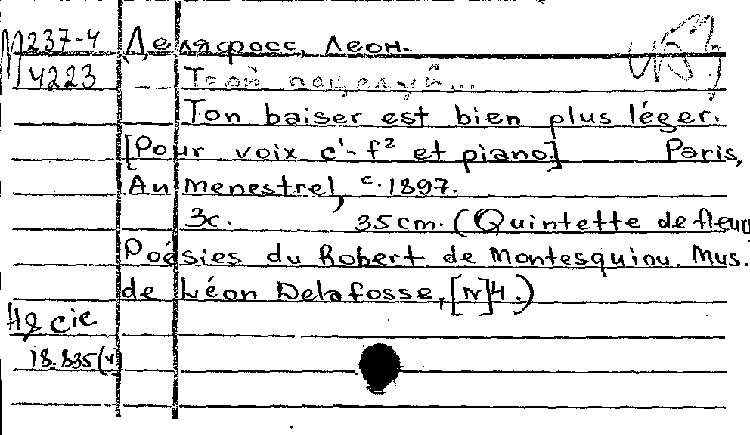 М237-4 Делафосс, Леон.
4223 Твой поцелуй...
Ton baiser est bien plus léger.
[Pour voix c'-f² et piano] Paris,
Au menestrel, c.1897.
3c. 35cm. (Quintette de fleur
Poésies du Robert de Montesquiou. Mus.
de Léon Delafosse, [N]4.)
18.835(4)